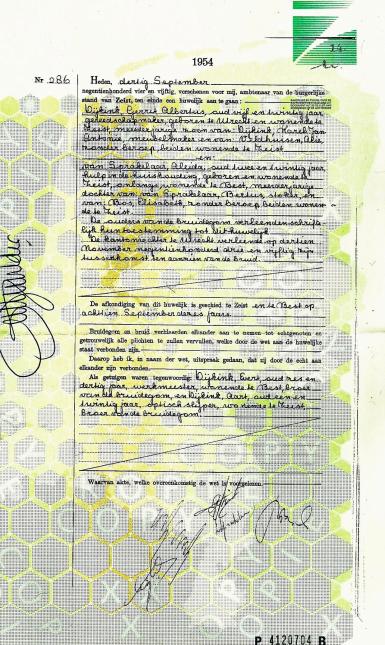 14
1954
Nr 286
Heden, dertig September
negentienhonderd vier en vijftig, verschenen voor mij, ambtenaar van de burgerlijke
stand van Zeist, ten einde een huwelijk aan te gaan:
Dijkink, Gerrit Albertus, oud vijf en twintig jaar
gereedschapmaker, geboren te Utrecht en wonende te
Zeist, meerderjarige zoon van: Dijkink, Karel Jan
Antonie, meubelmaker en van: Veldhuisen, Alie,
zonder beroep beiden wonende te Zeist
en:
van Sprakelaar, Aleida, oud twee en twintig jaar,
hulp in de huishouding, geboren en wonende te
Zeist, onlangs wonende te Best, meerderjarige
dochter van: van Sprakelaar, Bertus, stoker, en
van: Bos, Elisabeth, zonder beroep beiden wonen-
de te Zeist.
De ouders van de bruidegom verleenden schrifte-
lijk hun toestemming tot dit huwelijk
De kantonrechter te Utrecht verleende op dertien
November negentienhonderd drie en vijftig zijn
tussenkomst ten aanzien van de bruid.
De afkondiging van dit huwelijk is geschied te Zeist en te Best op
achttien September dezes jaars.
Bruidegom en bruid verklaarden elkander aan te nemen tot echtgenoten en
getrouwelijk alle plichten te zullen vervullen, welke door de wet aan de huwelijkse
staat verbonden zijn.
Daarop heb ik, in naam der wet, uitspraak gedaan, dat zij door de echt aan
elkander zijn verbonden.
Als getuigen waren tegenwoordig: Dijkink, Evert, oud zes en
dertig jaar, werkmeester, wonende te Best, broer
van de bruidegom, en Dijkink, Aart, oud een en
twintig jaar, optisch slijper, wonende te Zeist,
broer van de bruidegom.
Waarvan akte, welke overeenkomstig de wet is voorgelezen.
P 4120704 B